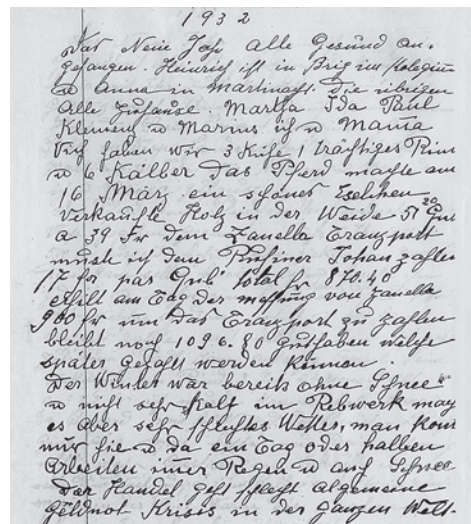 1932
Das Neue Jahr alle Gesund an-
gefangen. Heinrich ist in Brig im Kolegium
u Anna in Martinach. Die übrigen
alle zuhause. Martha Ida Paul
Klemenz u Marius ich u Mama
Vich haben wir 3 Kühe 1 trächtiges Rin
u 6 Kälber Das Pferd machte am
16 März ein schönes Eselchen
verkaufte Holz in der Weide 51 20 Gub
a 39 Fr dem Zanella Tranzport
muste ich dem Johan zahlen
17 fr pas Gub total fr 870.40
Ehilt am Tag der von Zanella
900 fr um das Tranzport zu zahlen
bleibt noch 1096.80 Guthaben welche
später gezahlt werden können
Der Winter war bereits ohne Schnee
u nicht sehr Kalt im Rebwerk
es aber sehr schlechtes Wetter, man
nur hie u da ein Tag oder halben
Arbeiten imer Regen u auf Schnee
Der Handel geht schlecht algemeine
Geldnot Krisis in der ganzen Welt-